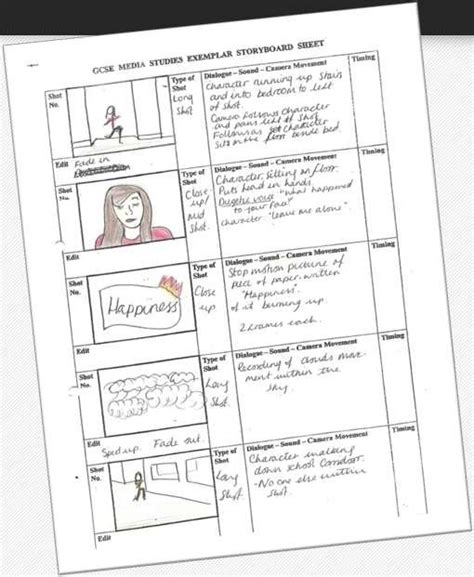 GCSE MEDIA STUDIES EXEMPLAR STORYBOARD SHEET
Shot
No.
Type of
Shot
Long
Shot
Dialogue – Sound – Camera Movement
Timing
Character running up stairs
and into bedroom to left
of shot.
Camera follows character
and pans left of shot
Following character
sits on the floor beside bed.
Edit Fade in
Shot
No.
Type of
Shot
Close
up/
Mid
Shot.
Dialogue – Sound – Camera Movement
Timing
Character sitting on floor.
Puts head in hands
Diegetic voice "what happened
to your face"
character "leave me alone"
Edit
Shot
No.
Happiness
Type of
Shot
Close
up
Dialogue – Sound – Camera Movement
Timing
Stop motion picture of
piece of paper written
"Happiness".
of it burning up.
2 frames each.
Edit
Shot
No.
Type of
Shot
Long
Shot.
Dialogue – Sound – Camera Movement
Timing
Recording of clouds move-
ment within the
sky.
Edit
Sped up. Fade out.
Shot
No.
Type of
Shot
Long
Shot.
Dialogue – Sound – Camera Movement
Timing
Character walking
down school corridor.
- No one else within
shot.
Edit